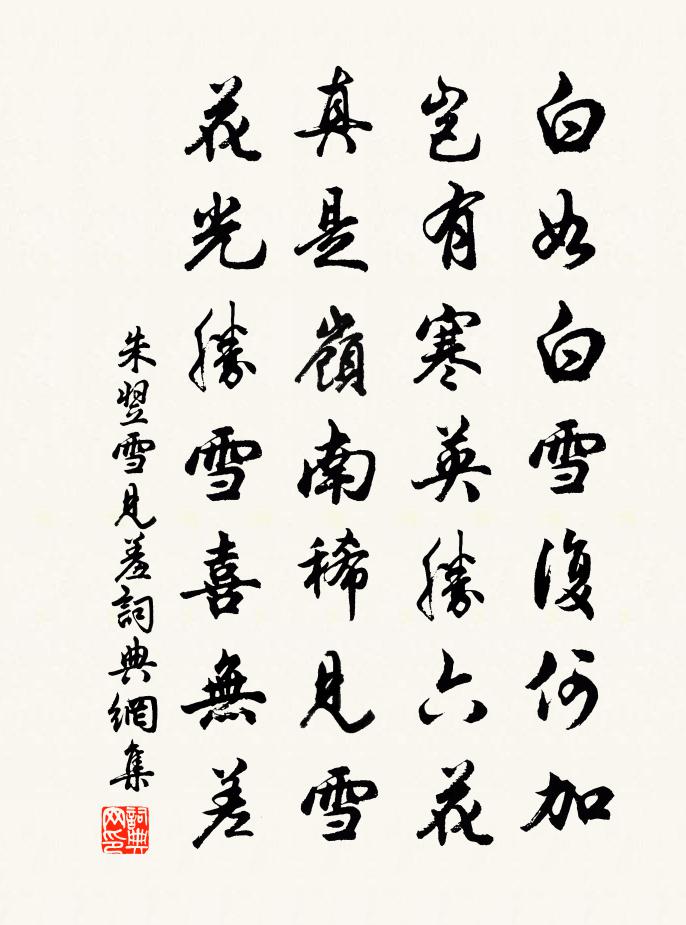 白如白雪復何加
豈有寒英勝六花
真是嶺南稀見雪
花光勝雪喜無差
朱翌雪見羞詞典網集
詞典网印